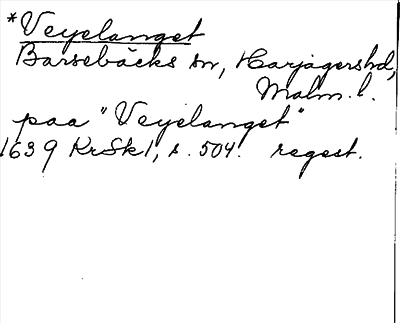 *Veyelanget
Barsebäcks sn, Harjagershd,
Malm. l.
paa "Veyelanget"
1639 KrSk 1, s. 504. regest.